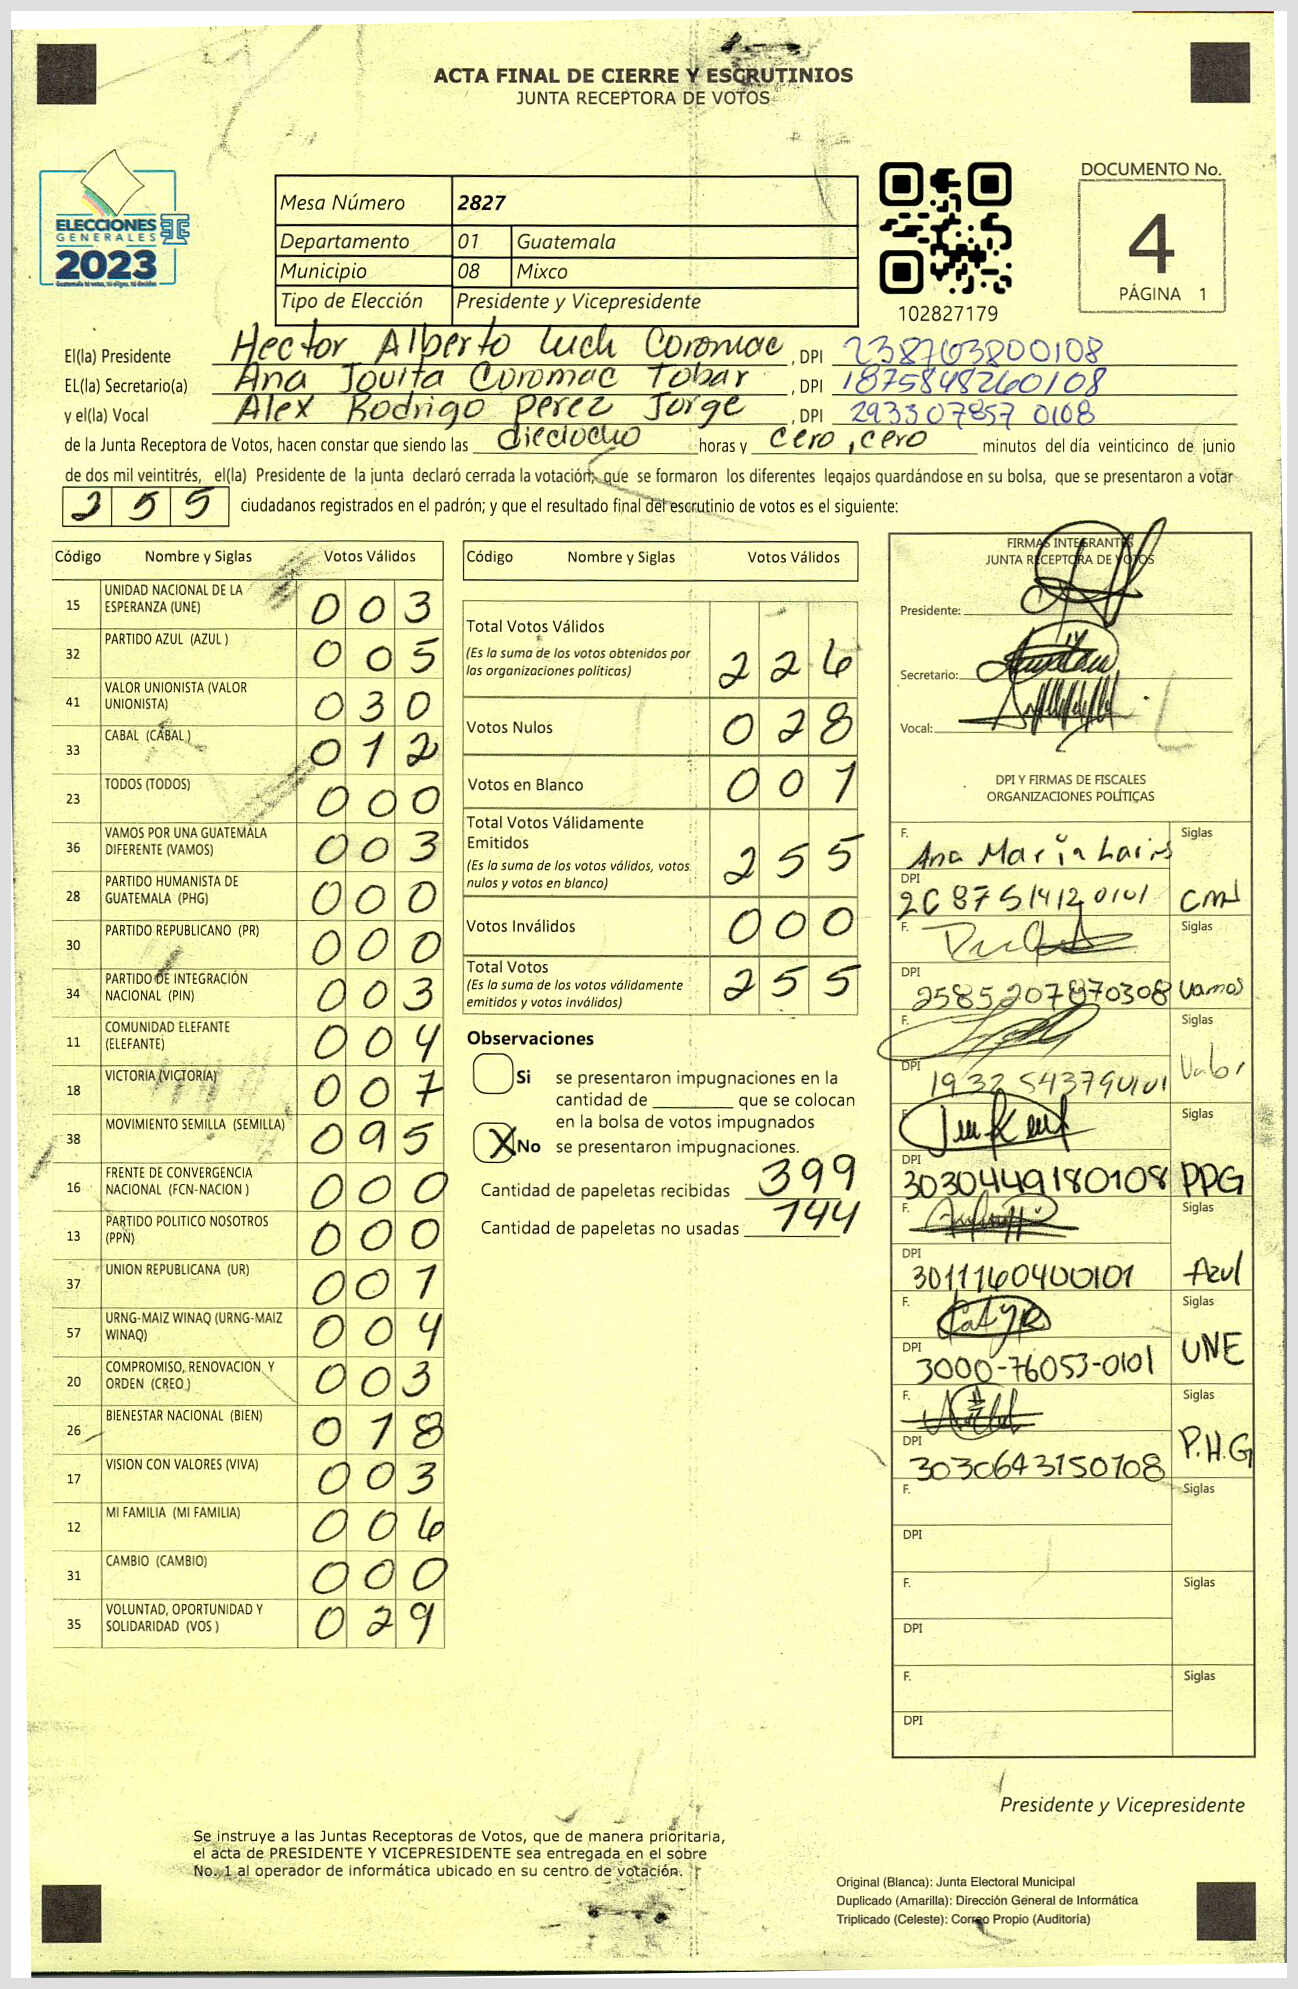 ACTA FINAL DE CIERRE Y ESCRUTINIOS
JUNTA RECEPTORA DE VOTOS
ELECCIONES
GENERALES
2023
Guatemala tú votas, tú eliges, tú decides
Mesa Número 2827
Departamento 01 Guatemala
Municipio 08 Mixco
Tipo de Elección Presidente y Vicepresidente
102827179
DOCUMENTO No.
4
PÁGINA 1
El(la) Presidente Hector Alberto Coromac, DPI 238763800108
EL(la) Secretario(a) Ana Jovita Coromac Tobar, DPI 1875848260108
y el(la) Vocal Alex Rodrigo perez Jorge, DPI 293307857 0108
de la Junta Receptora de Votos, hacen constar que siendo las dieciocho horas y cero, cero minutos del día veinticinco de junio
de dos mil veintitrés, el(la) Presidente de la junta declaró cerrada la votación, que se formaron los diferentes legajos guardándose en su bolsa, que se presentaron a votar
255 ciudadanos registrados en el padrón; y que el resultado final del escrutinio de votos es el siguiente:
Código Nombre y Siglas Votos Válidos
15 UNIDAD NACIONAL DE LA ESPERANZA (UNE) 003
32 PARTIDO AZUL (AZUL ) 005
41 VALOR UNIONISTA (VALOR UNIONISTA) 030
33 CABAL (CABAL ) 012
23 TODOS (TODOS) 000
36 VAMOS POR UNA GUATEMALA DIFERENTE (VAMOS) 003
28 PARTIDO HUMANISTA DE GUATEMALA (PHG) 000
30 PARTIDO REPUBLICANO (PR) 000
34 PARTIDO DE INTEGRACIÓN NACIONAL (PIN) 003
11 COMUNIDAD ELEFANTE (ELEFANTE) 004
18 VICTORIA (VICTORIA) 007
38 MOVIMIENTO SEMILLA (SEMILLA) 095
16 FRENTE DE CONVERGENCIA NACIONAL (FCN-NACION ) 000
13 PARTIDO POLITICO NOSOTROS (PPN) 000
37 UNION REPUBLICANA (UR) 001
57 URNG-MAIZ WINAQ (URNG-MAIZ WINAQ) 004
20 COMPROMISO, RENOVACION Y ORDEN (CREO ) 003
26 BIENESTAR NACIONAL (BIEN) 018
17 VISION CON VALORES (VIVA) 003
12 MI FAMILIA (MI FAMILIA) 006
31 CAMBIO (CAMBIO) 000
35 VOLUNTAD, OPORTUNIDAD Y SOLIDARIDAD (VOS ) 029
Código Nombre y Siglas Votos Válidos
Total Votos Válidos 226
(Es la suma de los votos obtenidos por
las organizaciones políticas)
Votos Nulos 028
Votos en Blanco 001
Total Votos Válidamente
Emitidos 255
(Es la suma de los votos válidos, votos
nulos y votos en blanco)
Votos Inválidos 000
Total Votos 255
(Es la suma de los votos válidamente
emitidos y votos inválidos)
Observaciones
Si se presentaron impugnaciones en la
cantidad de ________ que se colocan
en la bolsa de votos impugnados
X No se presentaron impugnaciones.
Cantidad de papeletas recibidas 399
Cantidad de papeletas no usadas 144
FIRMAS INTEGRANTES
JUNTA RECEPTORA DE VOTOS
Presidente:
Secretario:
Vocal:
DPI Y FIRMAS DE FISCALES
ORGANIZACIONES POLÍTICAS
F. Ana María Siglas
DPI 2C8751412 0101
F. Siglas
DPI 2585207870308 Vamos
F. Siglas
DPI 1932543790101 Valor
F. Siglas
DPI 3030449180108 PPG
F. Siglas
DPI 3011160400101 Azul
F. Siglas
DPI 3000-76053-0101 UNE
F. Siglas
DPI 3030643150108 P.H.G
F. Siglas
DPI
F. Siglas
DPI
F. Siglas
DPI
Presidente y Vicepresidente
Se instruye a las Juntas Receptoras de Votos, que de manera prioritaria,
el acta de PRESIDENTE Y VICEPRESIDENTE sea entregada en el sobre
No. 1 al operador de informática ubicado en su centro de votación.
Original (Blanca): Junta Electoral Municipal
Duplicado (Amarilla): Dirección General de Informática
Triplicado (Celeste): Correo Propio (Auditoría)